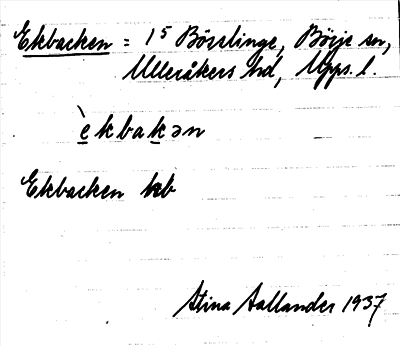 Ekbacken = 1⁵ Bösslinge, Börje sn,
Ulleråkers hd, Upps. l.
èkbakən
Ekbacken kb
Stina Aallander 1937